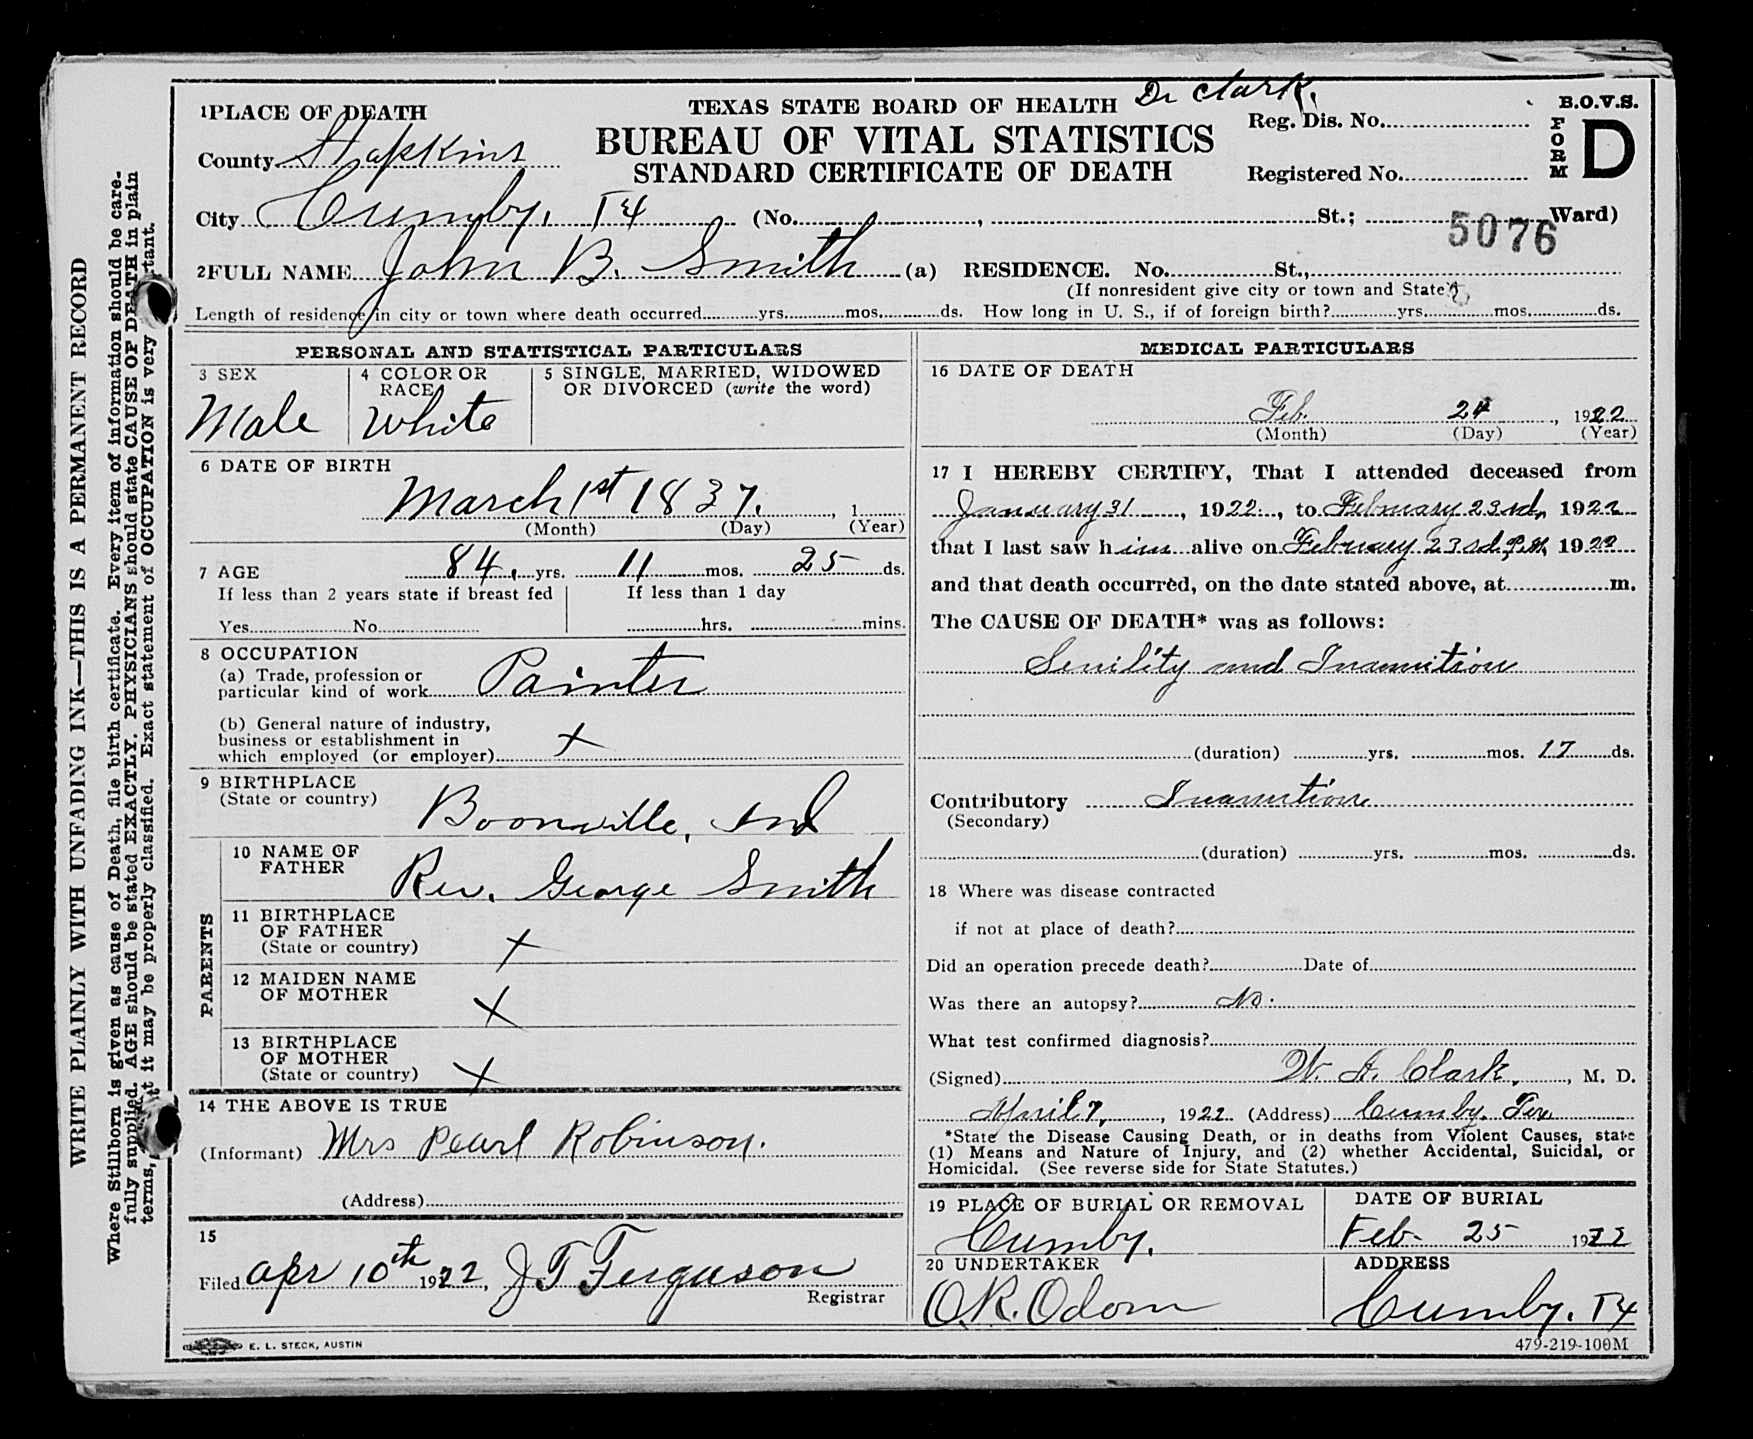 Dr Clark.
1PLACE OF DEATH
TEXAS STATE BOARD OF HEALTH
BUREAU OF VITAL STATISTICS
STANDARD CERTIFICATE OF DEATH
Reg. Dis. No.
Registered No.
B.O.V.S.
FORM D
County Hopkins
City Cumby, Tx (No. , St.; Ward)
5076
2FULL NAME John B. Smith (a) RESIDENCE. No. St.,
(If nonresident give city or town and State)
Length of residence in city or town where death occurred yrs. mos. ds. How long in U. S., if of foreign birth? yrs. mos. ds.
PERSONAL AND STATISTICAL PARTICULARS
3 SEX
Male
4 COLOR OR RACE
White
5 SINGLE, MARRIED, WIDOWED
OR DIVORCED (write the word)
6 DATE OF BIRTH
March 1st 1837. , 1
(Month) (Day) (Year)
7 AGE 84, yrs. 11 mos. 25 ds.
If less than 2 years state if breast fed
Yes No
If less than 1 day
hrs. mins.
8 OCCUPATION
(a) Trade, profession or
particular kind of work Painter
(b) General nature of industry,
business or establishment in
which employed (or employer) x
9 BIRTHPLACE
(State or country)
Boonville, Ind
PARENTS
10 NAME OF
FATHER
Rev. George Smith
11 BIRTHPLACE
OF FATHER
(State or country) x
12 MAIDEN NAME
OF MOTHER x
13 BIRTHPLACE
OF MOTHER
(State or country) x
14 THE ABOVE IS TRUE
(Informant) Mrs Pearl Robinson.
(Address)
15
Filed Apr 10th 1922, J T Ferguson
Registrar
MEDICAL PARTICULARS
16 DATE OF DEATH
Feb. 24 , 1922
(Month) (Day) (Year)
17 I HEREBY CERTIFY, That I attended deceased from
January 31 , 1922 , to February 23rd, 1922
that I last saw him alive on February 23rd P.M. 1922
and that death occurred, on the date stated above, at m.
The CAUSE OF DEATH* was as follows:
Senility and Inanition
(duration) yrs. mos. 17 ds.
Contributory Inanition
(Secondary)
(duration) yrs. mos. ds.
18 Where was disease contracted
if not at place of death?
Did an operation precede death? Date of
Was there an autopsy? No.
What test confirmed diagnosis?
(Signed) W. A. Clark, , M. D.
April 7, , 1922 (Address) Cumby, Tex
*State the Disease Causing Death, or in deaths from Violent Causes, state
(1) Means and Nature of Injury, and (2) whether Accidental, Suicidal, or
Homicidal. (See reverse side for State Statutes.)
19 PLACE OF BURIAL OR REMOVAL
Cumby.
DATE OF BURIAL
Feb. 25 1922
20 UNDERTAKER
O.R. Odom
ADDRESS
Cumby. Tx
E. L. STECK, AUSTIN
479-219-100M
WRITE PLAINLY WITH UNFADING INK—THIS IS A PERMANENT RECORD
Where Stillborn is given as cause of Death, file birth certificate. Every item of information should be care-
fully supplied. AGE should be stated EXACTLY. PHYSICIANS should state CAUSE OF DEATH in plain
terms, it may be properly classified. Exact statement of OCCUPATION is very